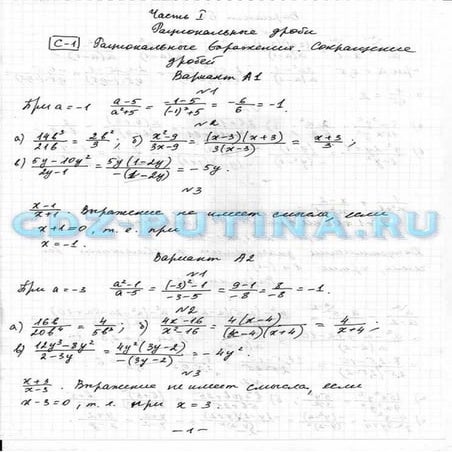 Часть I
Рациональные дроби
С-1 Рациональные выражения. Сокращение
дробей
Вариант А1
№1
При a = -1 (a-5)/(a²+5) = (-1-5)/((-1)²+5) = -6/6 = -1.
№2
а) 14b³/21b = 2b²/3; б) (x²-9)/(3x-9) = (x-3)(x+3)/3(x-3) = (x+3)/3;
в) (5y-10y²)/(2y-1) = 5y(1-2y)/-(1-2y) = -5y.
№3
(x-1)/(x+1). Выражение не имеет смысла, если
x+1=0, т.е. при
x = -1.
GDZ-PUTINA.RU
Вариант А2
№1
При a = -3 (a²-1)/(a-5) = ((-3)²-1)/(-3-5) = (9-1)/(-8) = 8/-8 = -1.
№2
а) 16b/20b⁴ = 4/5b³; б) (4x-16)/(x²-16) = 4(x-4)/(x-4)(x+4) = 4/(x+4);
в) (12y³-8y²)/(2-3y) = 4y²(3y-2)/-(3y-2) = -4y².
№3
(x+3)/(x-3). Выражение не имеет смысла, если
x-3=0, т.е. при x = 3.
-1-